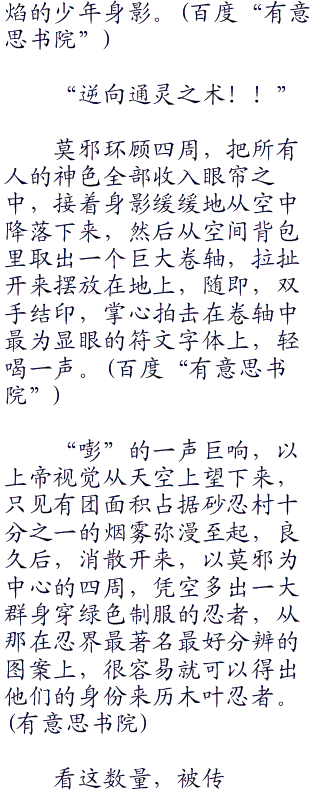 焰的少年身影。(百度“有意
思书院”)
“逆向通灵之术！！”
莫邪环顾四周，把所有
人的神色全部收入眼帘之
中，接着身影缓缓地从空中
降落下来，然后从空间背包
里取出一个巨大卷轴，拉扯
开来摆放在地上，随即，双
手结印，掌心拍击在卷轴中
最为显眼的符文字体上，轻
喝一声。(百度“有意思书
院”)
“嘭”的一声巨响，以
上帝视觉从天空上望下来，
只见有团面积占据砂忍村十
分之一的烟雾弥漫至起，良
久后，消散开来，以莫邪为
中心的四周，凭空多出一大
群身穿绿色制服的忍者，从
那在忍界最著名最好分辨的
图案上，很容易就可以得出
他们的身份来历木叶忍者。
(有意思书院)
看这数量，被传